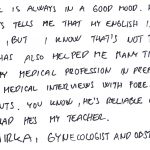 IS ALWAYS IN A GOOD MOOD.
TELLS ME THAT MY ENGLISH I
, BUT I KNOW THAT'S NOT T
HAS ALSO HELPED ME MANY TIM
MY MEDICAL PROFESSION IN PREP
MEDICAL INTERVIEWS WITH FORE
NTS. YOU KNOW, HE'S RELIABLE
HE'S MY TEACHER.
GYNECOLOGIST AND OBST